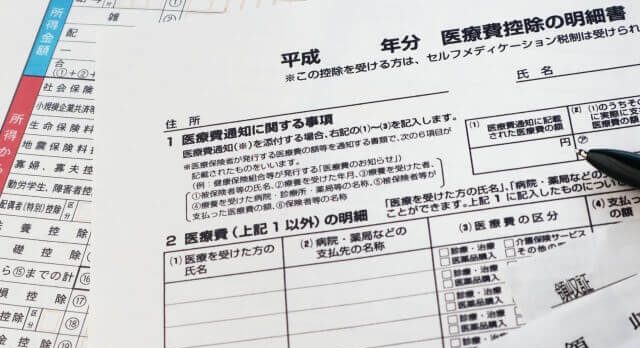 平成 年分 医療費控除の明細書
※この控除を受ける方は、セルフメディケーション税制は受けられ
住 所
氏 名
1 医療費通知に関する事項
医療費通知(※)を添付する場合、右記の(1)～(3)を記入します。
※医療保険者が発行する医療費の額等を通知する書類で、次の6項目が
記載されたものをいいます。
(例:健康保険組合等が発行する「医療費のお知らせ」)
①被保険者等の氏名、②療養を受けた年月、③療養を受けた者、
④療養を受けた病院・診療所・薬局等の名称、⑤被保険者等が
支払った医療費の額、⑥保険者等の名称
(1) 医療費通知に記載
された医療費の額
(2) (1)のうちそ
に実際に支
医療費の額
円
㋐
2 医療費(上記1以外)の明細
「医療を受けた方の氏名」、「病院・薬局など
ことができます。
上記1に記入したものについ
(1) 医療を受けた方の
氏名
(2) 病院・薬局などの
支払先の名称
(3) 医療費の区分
(4) 支払っ
□診療・治療
□介護保険サービス
□医薬品購入
□その他の
□診療・治療
□医薬品購入
□診療・治療
□医薬品購入
□診療・治療
領収証
領 収
所得金額
雑
配
一
合
(①+②+
所得か
社会保険
小規模企業共済等
生命保険料
地震保険料
寡婦、寡夫控除
勤労学生、障害者控
配偶者(特別)控除
区分
扶 養 控 除
基 礎 控 除
ら⑮までの計
⑯
損 控 除
⑰
費控除
区分
⑱
控 除
⑲